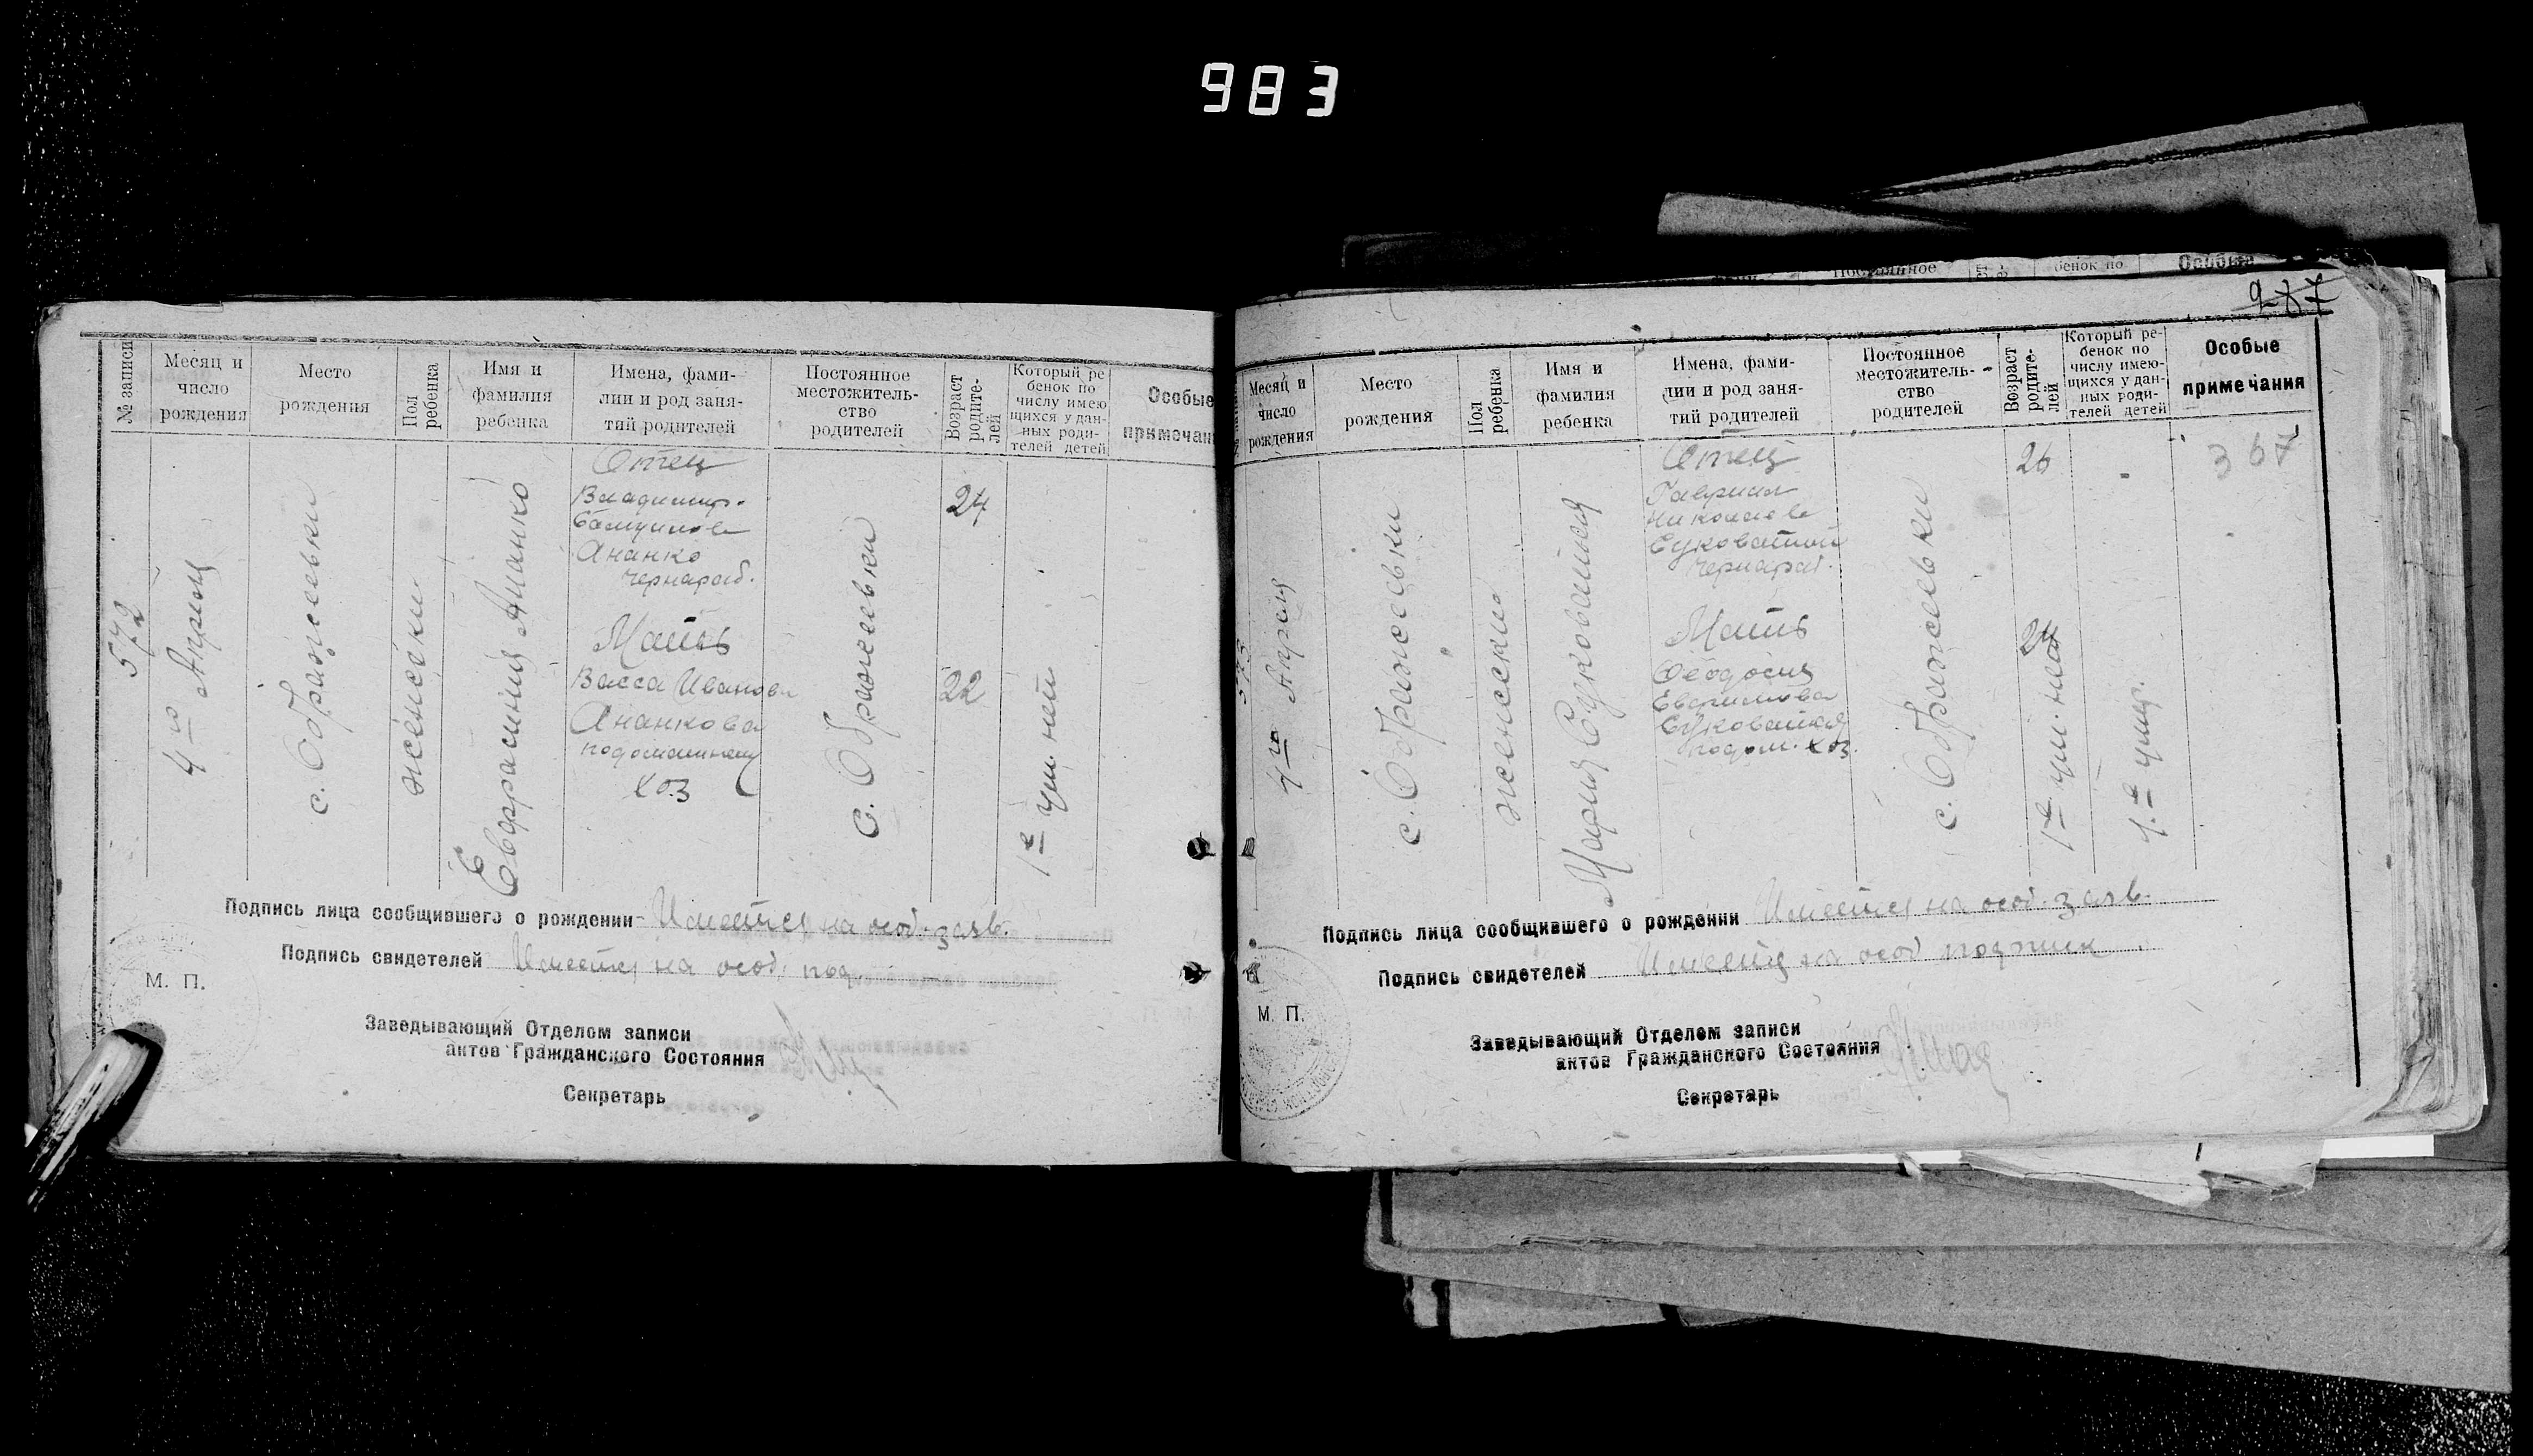 983
№ записи
Месяц и
число
рождения
Место
рождения
Пол
ребенка
Имя и
фамилия
ребенка
Имена, фами-
лии и род заня-
тий родителей
Постоянное
местожитель-
ство
родителей
Возраст
родите-
лей
Который ре
бенок по
числу имею
щихся у дан-
ных роди-
телей детей
Особые
примечан
572
4го Апреля
с. Ображеевки
женский
Евфрасиния Ананко
Отец
Владимир
Ананко
чернораб.
Мать
Васса Иванова
Ананкова
подомашнему
хоз
с. Ображеевки
24
22
1е чи. нет
Подпись лица сообщившего о рождении Имеется на особ. заяв.
Подпись свидетелей Имеется на особ. под.
М. П.
Заведывающий Отделом записи
актов Гражданского Состояния
Секретарь
Постоянное
бенок по
Особые
287
Месяц и
число
рождения
Место
рождения
Пол
ребенка
Имя и
фамилия
ребенка
Имена, фами-
лии и род заня-
тий родителей
Постоянное
местожитель-
ство
родителей
Возраст
родите-
лей
Который ре-
бенок по
числу имею-
щихся у дан-
ных роди-
телей детей
Особые
примечания
573
Апреля
с. Ображеевки
женский
Мария Суковатая
Отец
Гавриил
Николаев
Суковатый
чернораб.
Мать
Феодосия
Суковатая
подом. хоз.
с. Ображеевки
26
24
1е чи. нет
1.е умер.
367
Подпись лица сообщившего о рождении Имеется на особ. заяв.
Подпись свидетелей Имеется на особ подписк
М. П.
Заведывающий Отделом записи
актов Гражданского Состояния
Секретарь